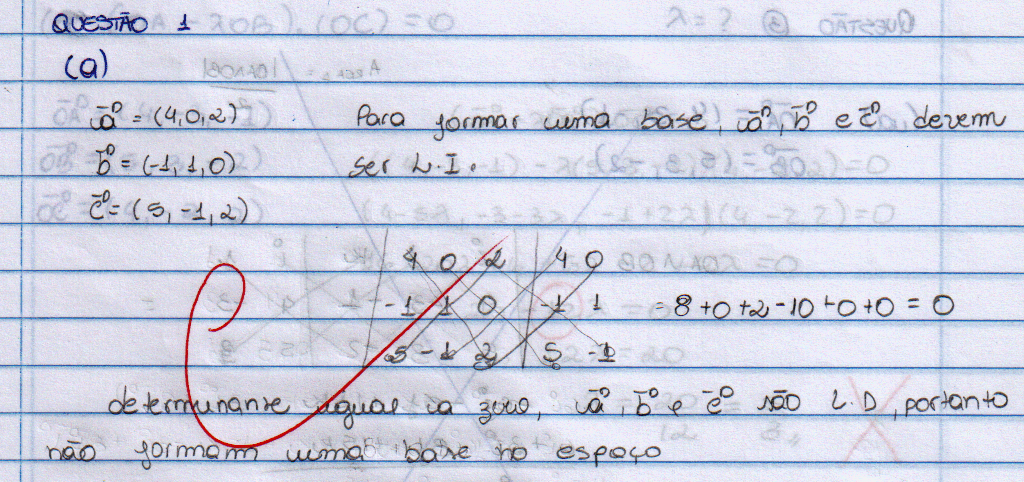 QUESTÃO 1
(a)
a⃗ = (4,0,2) Para formar uma base, a⃗, b⃗ e c⃗ devem
b⃗ = (-1,1,0) ser L.I.
c⃗ = (5,-1,2)
4 0 2 4 0
-1 1 0 -1 1 8+0+2-10+0+0 = 0
5 -1 2 5 -1
determinante igual a zero, a⃗, b⃗ e c⃗ são L.D, portanto
não formam uma base no espaço